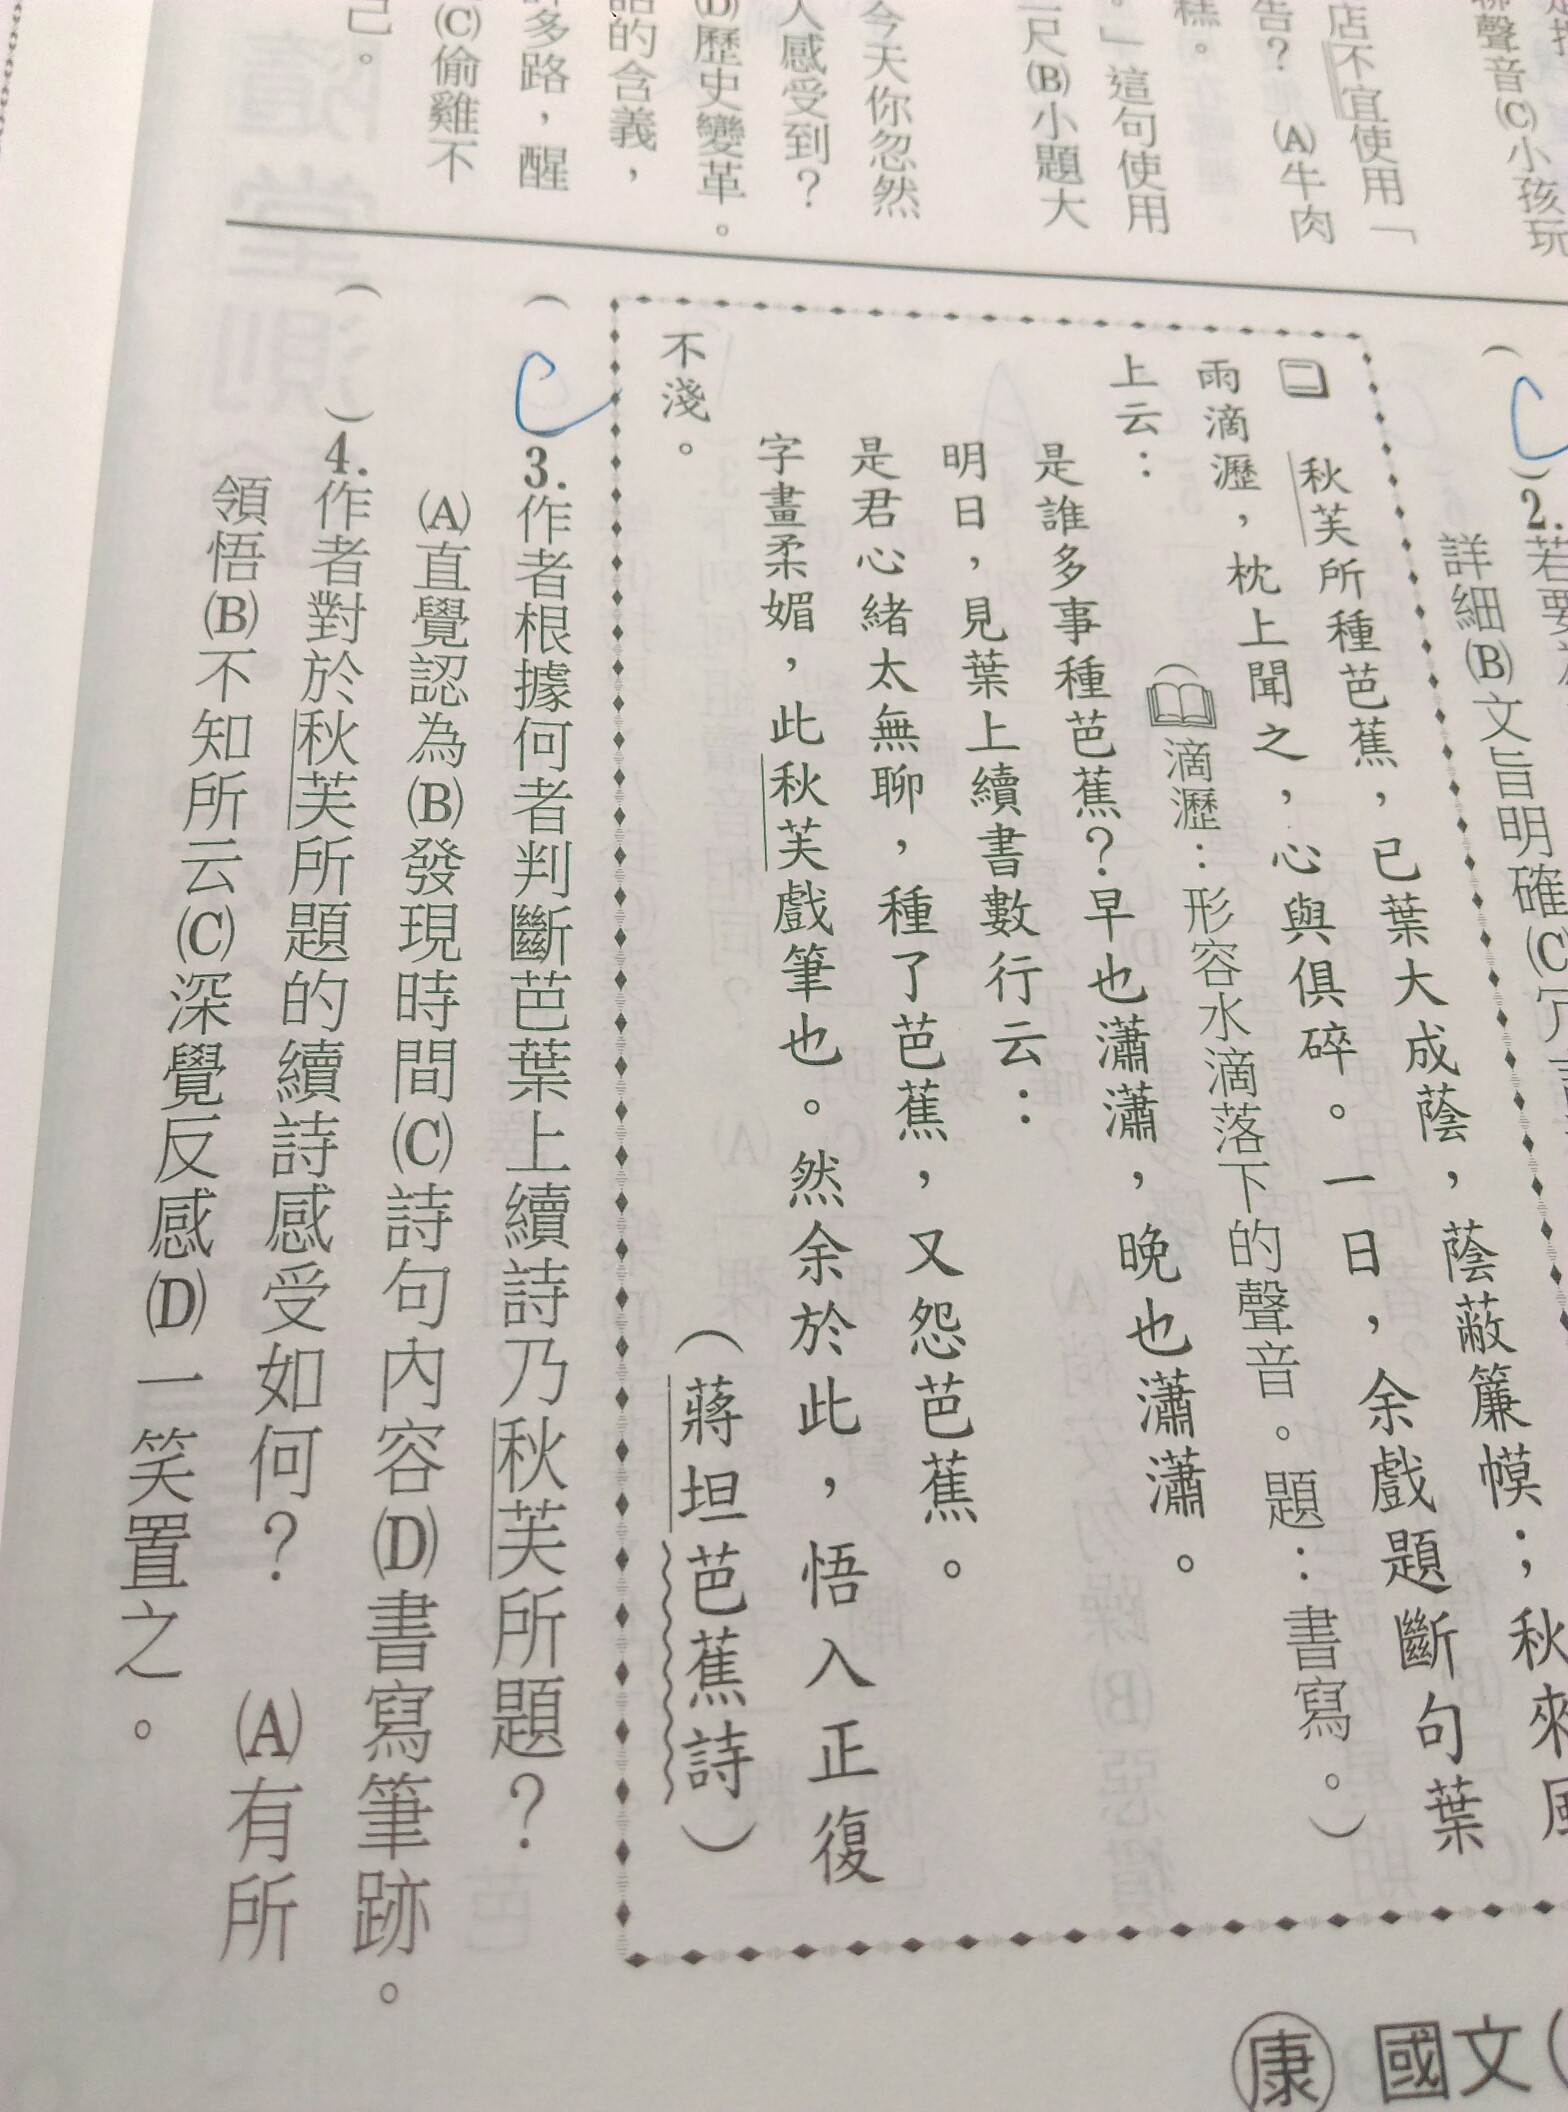 聯聲音(C)小孩玩
店不宜使用「
告？ (A)牛肉
糕。
。」這句使用
一尺(B)小題大
今天你忽然
人感受到？
(D)歷史變革。
的含義，
多路，醒
(C)偷雞不
己。
( C )2.若要為
詳細(B)文旨明確(C)
秋芙所種芭蕉，已葉大成蔭，蔭蔽簾幙；秋來風
雨滴瀝，枕上聞之，心與俱碎。一日，余戲題斷句葉
(滴瀝：形容水滴落下的聲音。題：書寫。)
上云：
是誰多事種芭蕉？早也瀟瀟，晚也瀟瀟。
明日，見葉上續書數行云：
是君心緒太無聊，種了芭蕉，又怨芭蕉。
字畫柔媚，此秋芙戲筆也。然余於此，悟入正復
不淺。 (蔣坦芭蕉詩)
( C )3.作者根據何者判斷芭葉上續詩乃秋芙所題？
(A)直覺認為(B)發現時間(C)詩句內容(D)書寫筆跡。
( )4.作者對於秋芙所題的續詩感受如何？ (A)有所
領悟(B)不知所云(C)深覺反感(D)一笑置之。
康 國文(